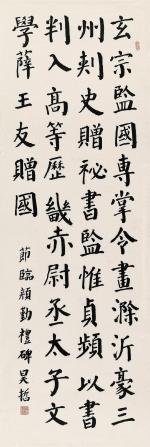 玄宗監國專掌令畫滁沂豪三
州刺史贈祕書監惟貞頻以書
判入高等歷畿赤尉丞太子文
學薛王友贈國
節臨顏勤禮碑 昊哲